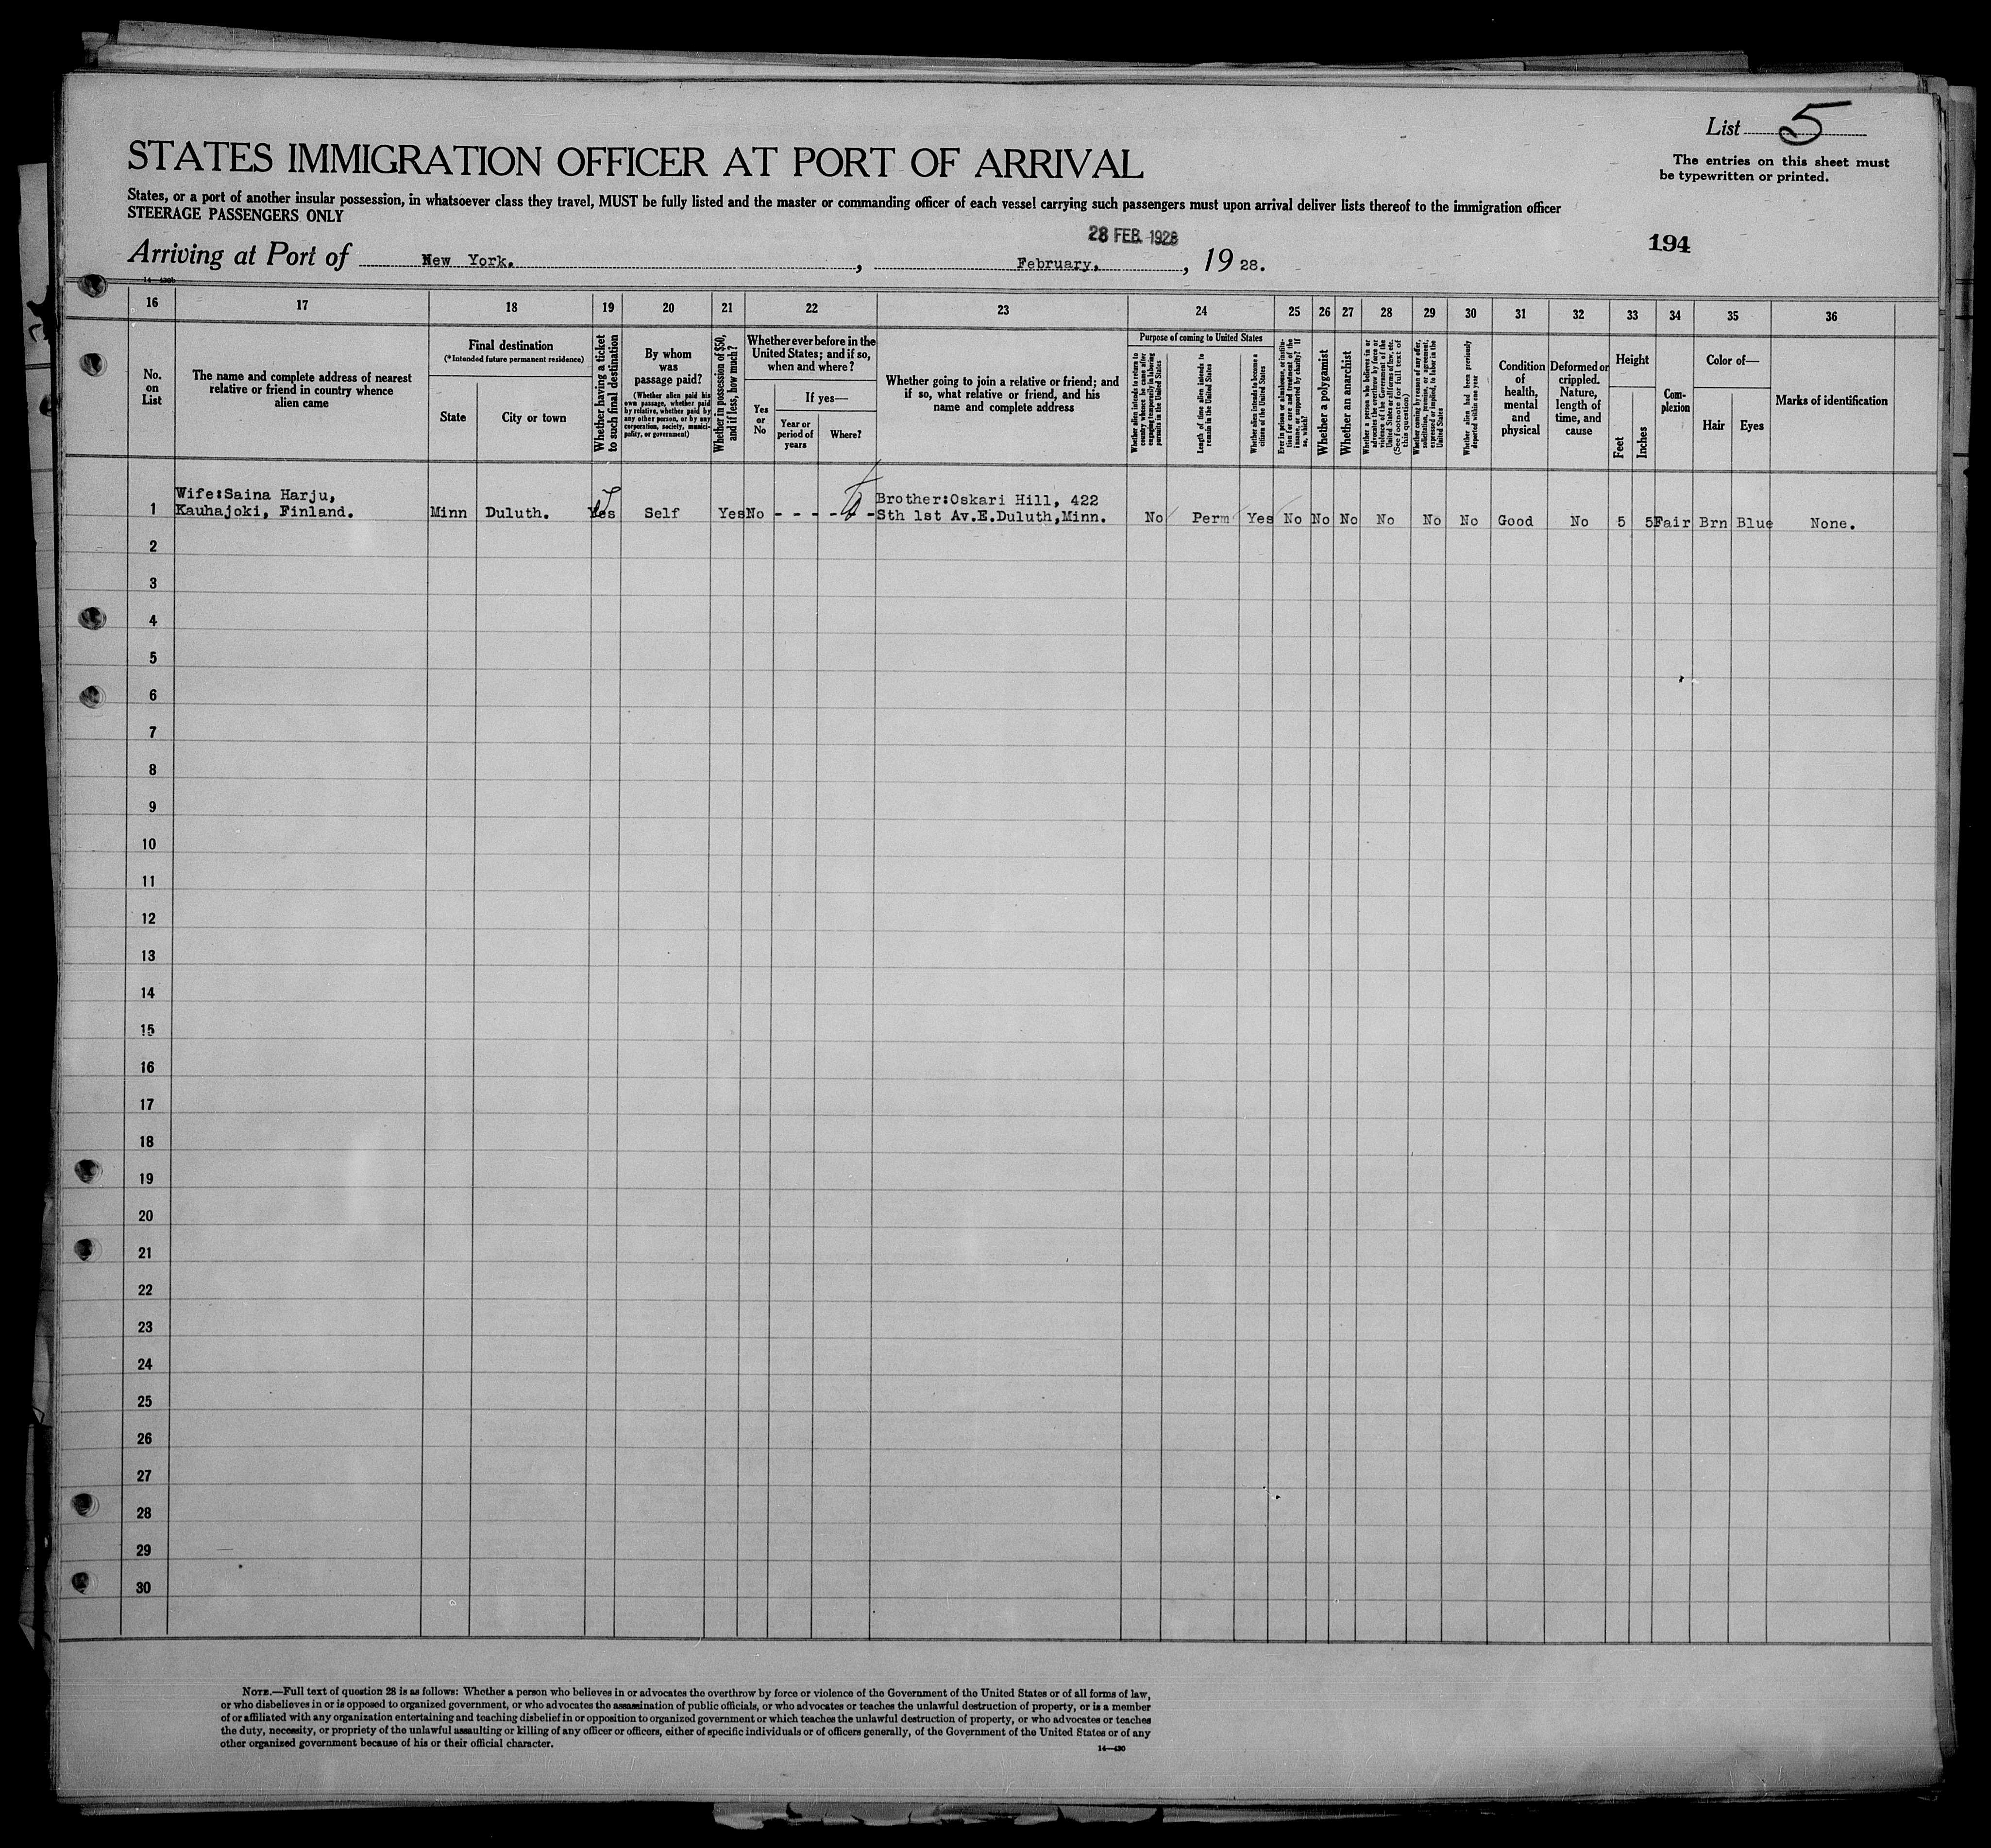 List 5
STATES IMMIGRATION OFFICER AT PORT OF ARRIVAL
The entries on this sheet must
be typewritten or printed.
States, or a port of another insular possession, in whatsoever class they travel, MUST be fully listed and the master or commanding officer of each vessel carrying such passengers must upon arrival deliver lists thereof to the immigration officer
STEERAGE PASSENGERS ONLY
28 FEB. 1928
194
Arriving at Port of New York. , February, , 19 28.
16 17 18 19 20 21 22 23 24 25 26 27 28 29 30 31 32 33 34 35 36
No.
on
List
The name and complete address of nearest
relative or friend in country whence
alien came
Final destination
(*Intended future permanent residence)
State
City or town
Whether having a ticket
to such final destination
By whom
was
passage paid?
(Whether alien paid his
own passage, whether paid
by relative, whether paid by
any other person, or by any
corporation, society, munici-
pality, or government)
Whether in possession of $50,
and if less, how much?
Whether ever before in the
United States; and if so,
when and where?
Yes
or
No
If yes—
Year or
period of
years
Where?
Whether going to join a relative or friend; and
if so, what relative or friend, and his
name and complete address
Purpose of coming to United States
Whether alien intends to return to
country whence he came after
engaging temporarily in laboring
pursuits in the United States
Length of time alien intends to
remain in the United States
Whether alien intends to become a
citizen of the United States
Ever in prison or almshouse, or institu-
tion for care and treatment of the
insane, or supported by charity? If
so, which?
Whether a polygamist
Whether an anarchist
Whether a person who believes in or
advocates the overthrow by force or
violence of the Government of the
United States or all forms of law, etc.
(See footnote for full text of
this question)
Whether coming by reason of any offer,
solicitation, promise, or agreement,
expressed or implied, to labor in the
United States
Whether alien had been previously
deported within one year
Condition
of
health,
mental
and
physical
Deformed or
crippled.
Nature,
length of
time, and
cause
Height
Feet
Inches
Com-
plexion
Color of—
Hair
Eyes
Marks of identification
Wife:Saina Harju, Brother:Oskari Hill, 422
1 Kauhajoki, Finland. Minn Duluth. Yes Self Yes No - - - - - - Sth 1st Av.E.Duluth,Minn. No Perm Yes No No No No No No Good No 5 5 Fair Brn Blue None.
2
3
4
5
6
7
8
9
10
11
12
13
14
15
16
17
18
19
20
21
22
23
24
25
26
27
28
29
30
NOTE.—Full text of question 28 is as follows: Whether a person who believes in or advocates the overthrow by force or violence of the Government of the United States or of all forms of law,
or who disbelieves in or is opposed to organized government, or who advocates the assassination of public officials, or who advocates or teaches the unlawful destruction of property, or is a member
of or affiliated with any organization entertaining and teaching disbelief in or opposition to organized government or which teaches the unlawful destruction of property, or who advocates or teaches
the duty, necessity, or propriety of the unlawful assaulting or killing of any officer or officers, either of specific individuals or of officers generally, of the Government of the United States or of any
other organized government because of his or their official character.
14—430